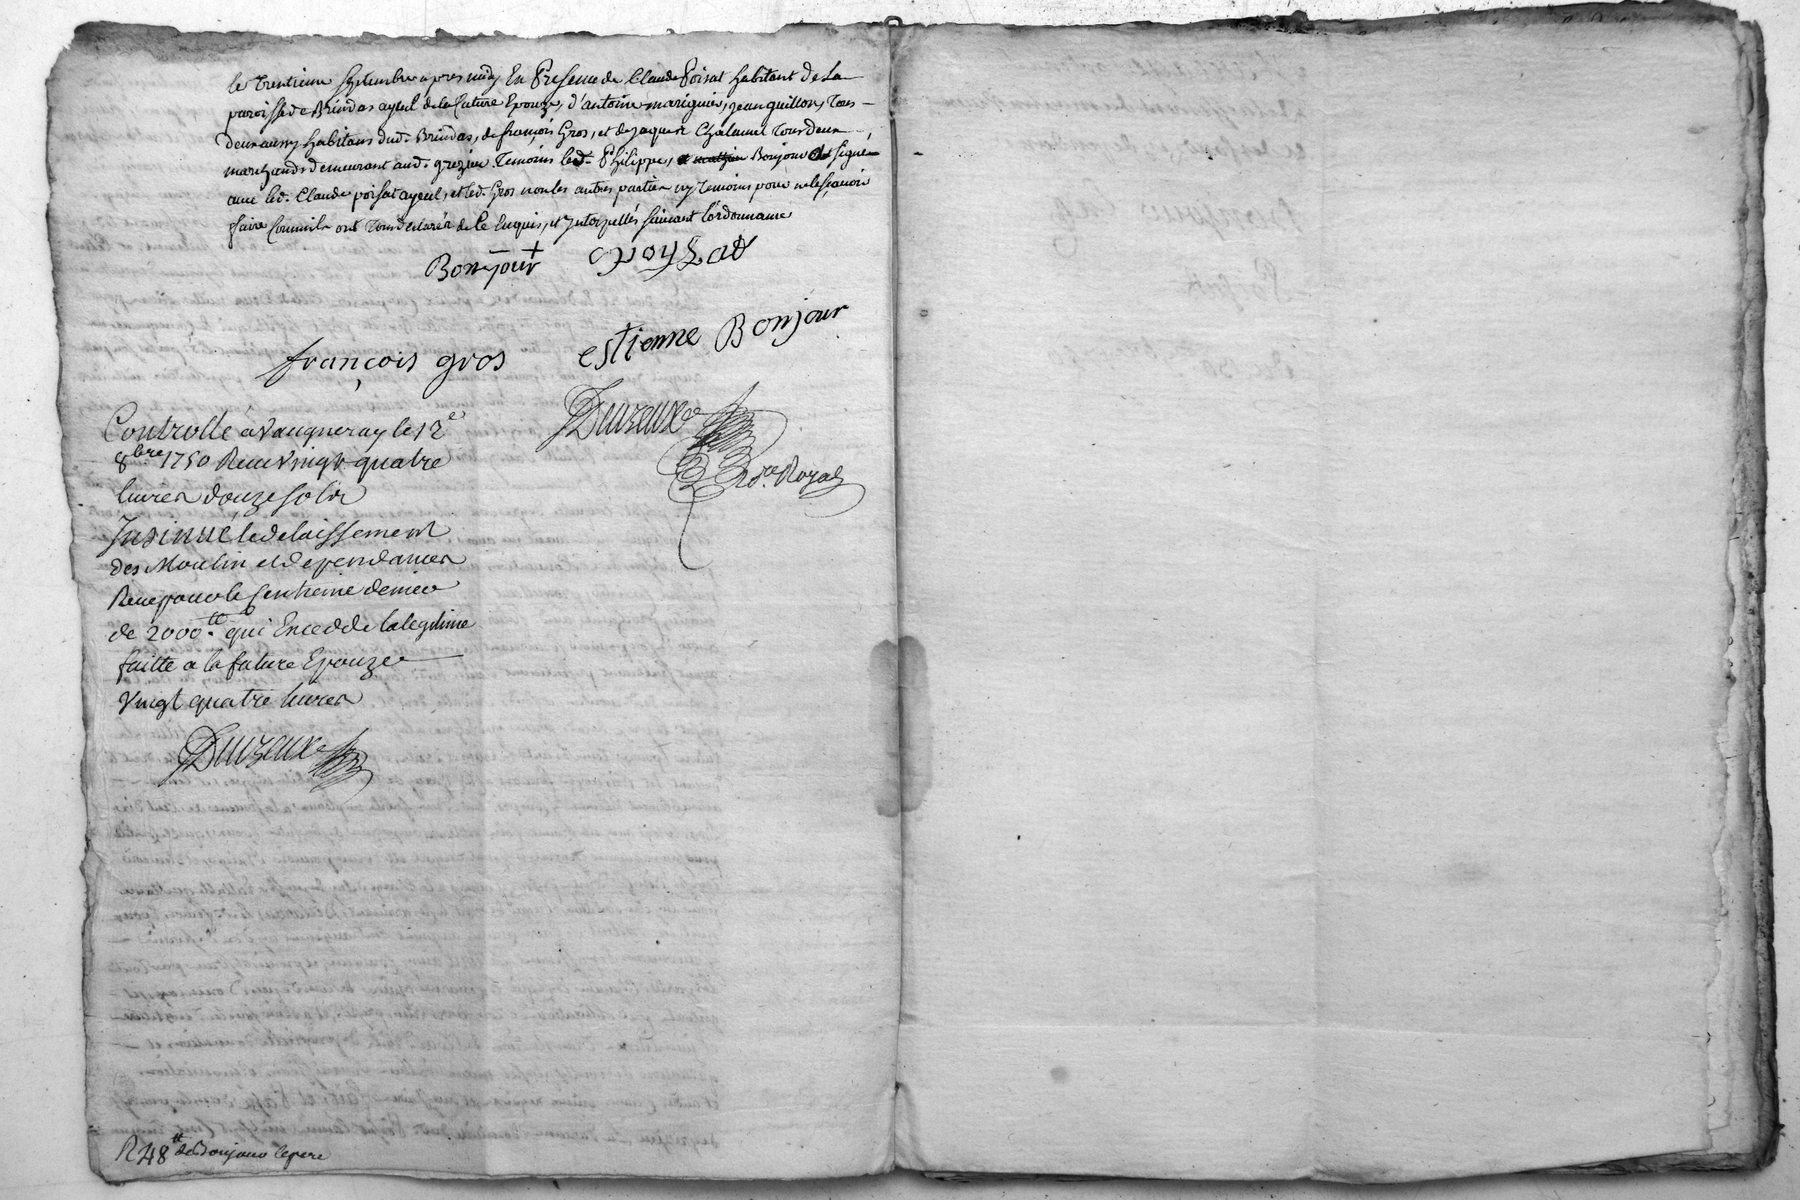 le trentieme septembre apres midy En Presence de Claude Poisat habitant de La
paroisse de Brindas ayeul de la future Epouze, d'antoine marignier, jean guillon, Tous
deux aussy habitans dud. Brindas, de françois Gros, et de jaques Chalamel Tous deux
marchands demeurant aud. grezieu Temoins led. Philippe, Bonjour signe
avec led. Claude poisat ayeul, et led. Gros non les autres parties ny Temoins pour ne le sçavoir
faire Comm'ils ont Tous declaré de Ce Enquis, et Interpellés suivant l'ordonnance
Bonjour poyzat
françois gros estienne Bonjour
Duzeux
Controllé à Vaugneray le 12e
8bre 1750 Receu Vingt quatre
livres douze sols
Insinué le delaissement
des Moulin et dependances
Receu pour le Centieme denier
de 2000tt. qui Excedde la legitime
faitte a la future Epouze
Vingt quatre livres
Duzeux
Nore. Royal
R 48tt de Bonjour le pere